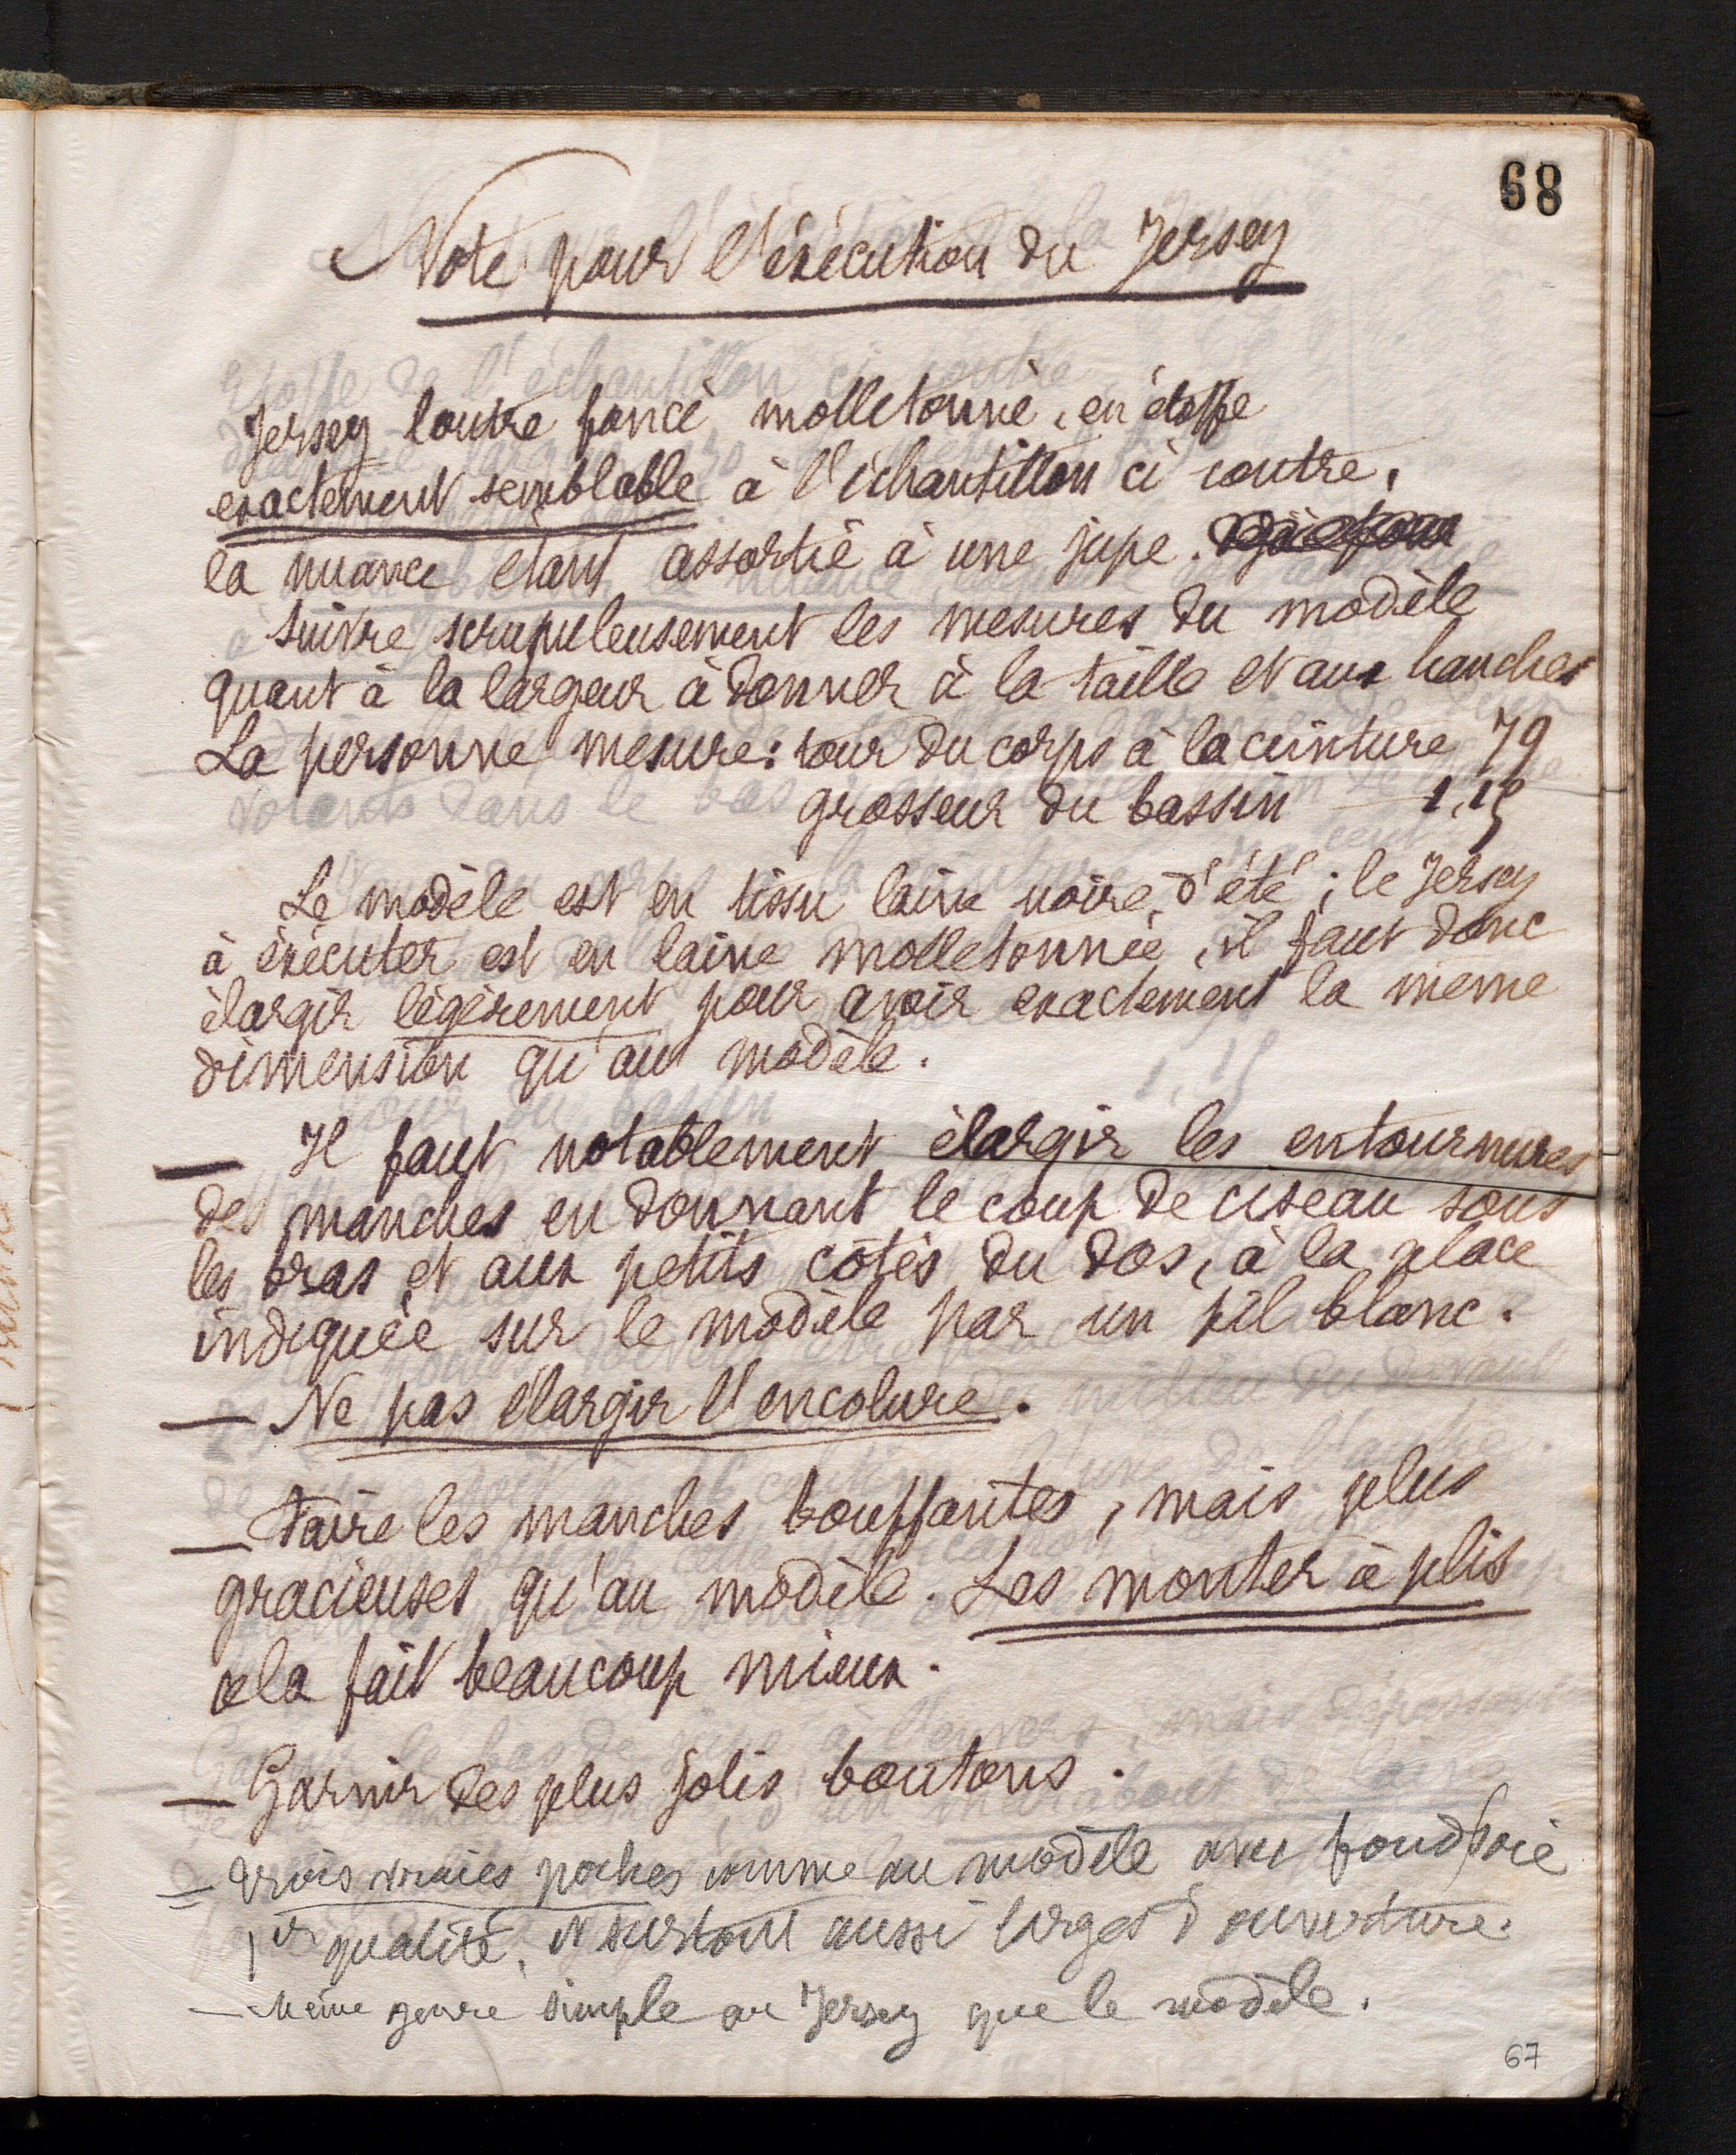 68
Note pour l'éxécution du Jersey
Jersey loutre foncé molletonné, en étoffe
exactement semblable à l'échantillon ci contre,
la nuance étant assortie à une jupe.
Suivre scrupuleusement les mesures du modèle
quant à la largeur à donner à la taille et aux hanches
La personne mesure: tour du corps à la ceinture 79
grosseur du bassin 1,15
Le modèle est en tissu laine noire d'été; le Jersey
à éxécuter est en laine molletonnée, il faut donc
élargir légèrement pour avoir exactement la même
dimension qu'au modèle.
— Il faut notablement élargir les entournures
des manches en donnant le coup de ciseau sous
les bras et aux petits côtés du dos, à la place
indiquée sur le modèle par un fil blanc.
— Ne pas élargir l'encolure.
— Faire les manches bouffantes, mais plus
gracieuses qu'au modèle. Les monter à plis
cela fait beaucoup mieux.
— Garnir des plus jolis boutons.
= trois vraies poches comme au modèle avec fond soie
1re qualité, et surtout aussi larges d'ouverture.
— Même genre simple au Jersey que le modèle.
67